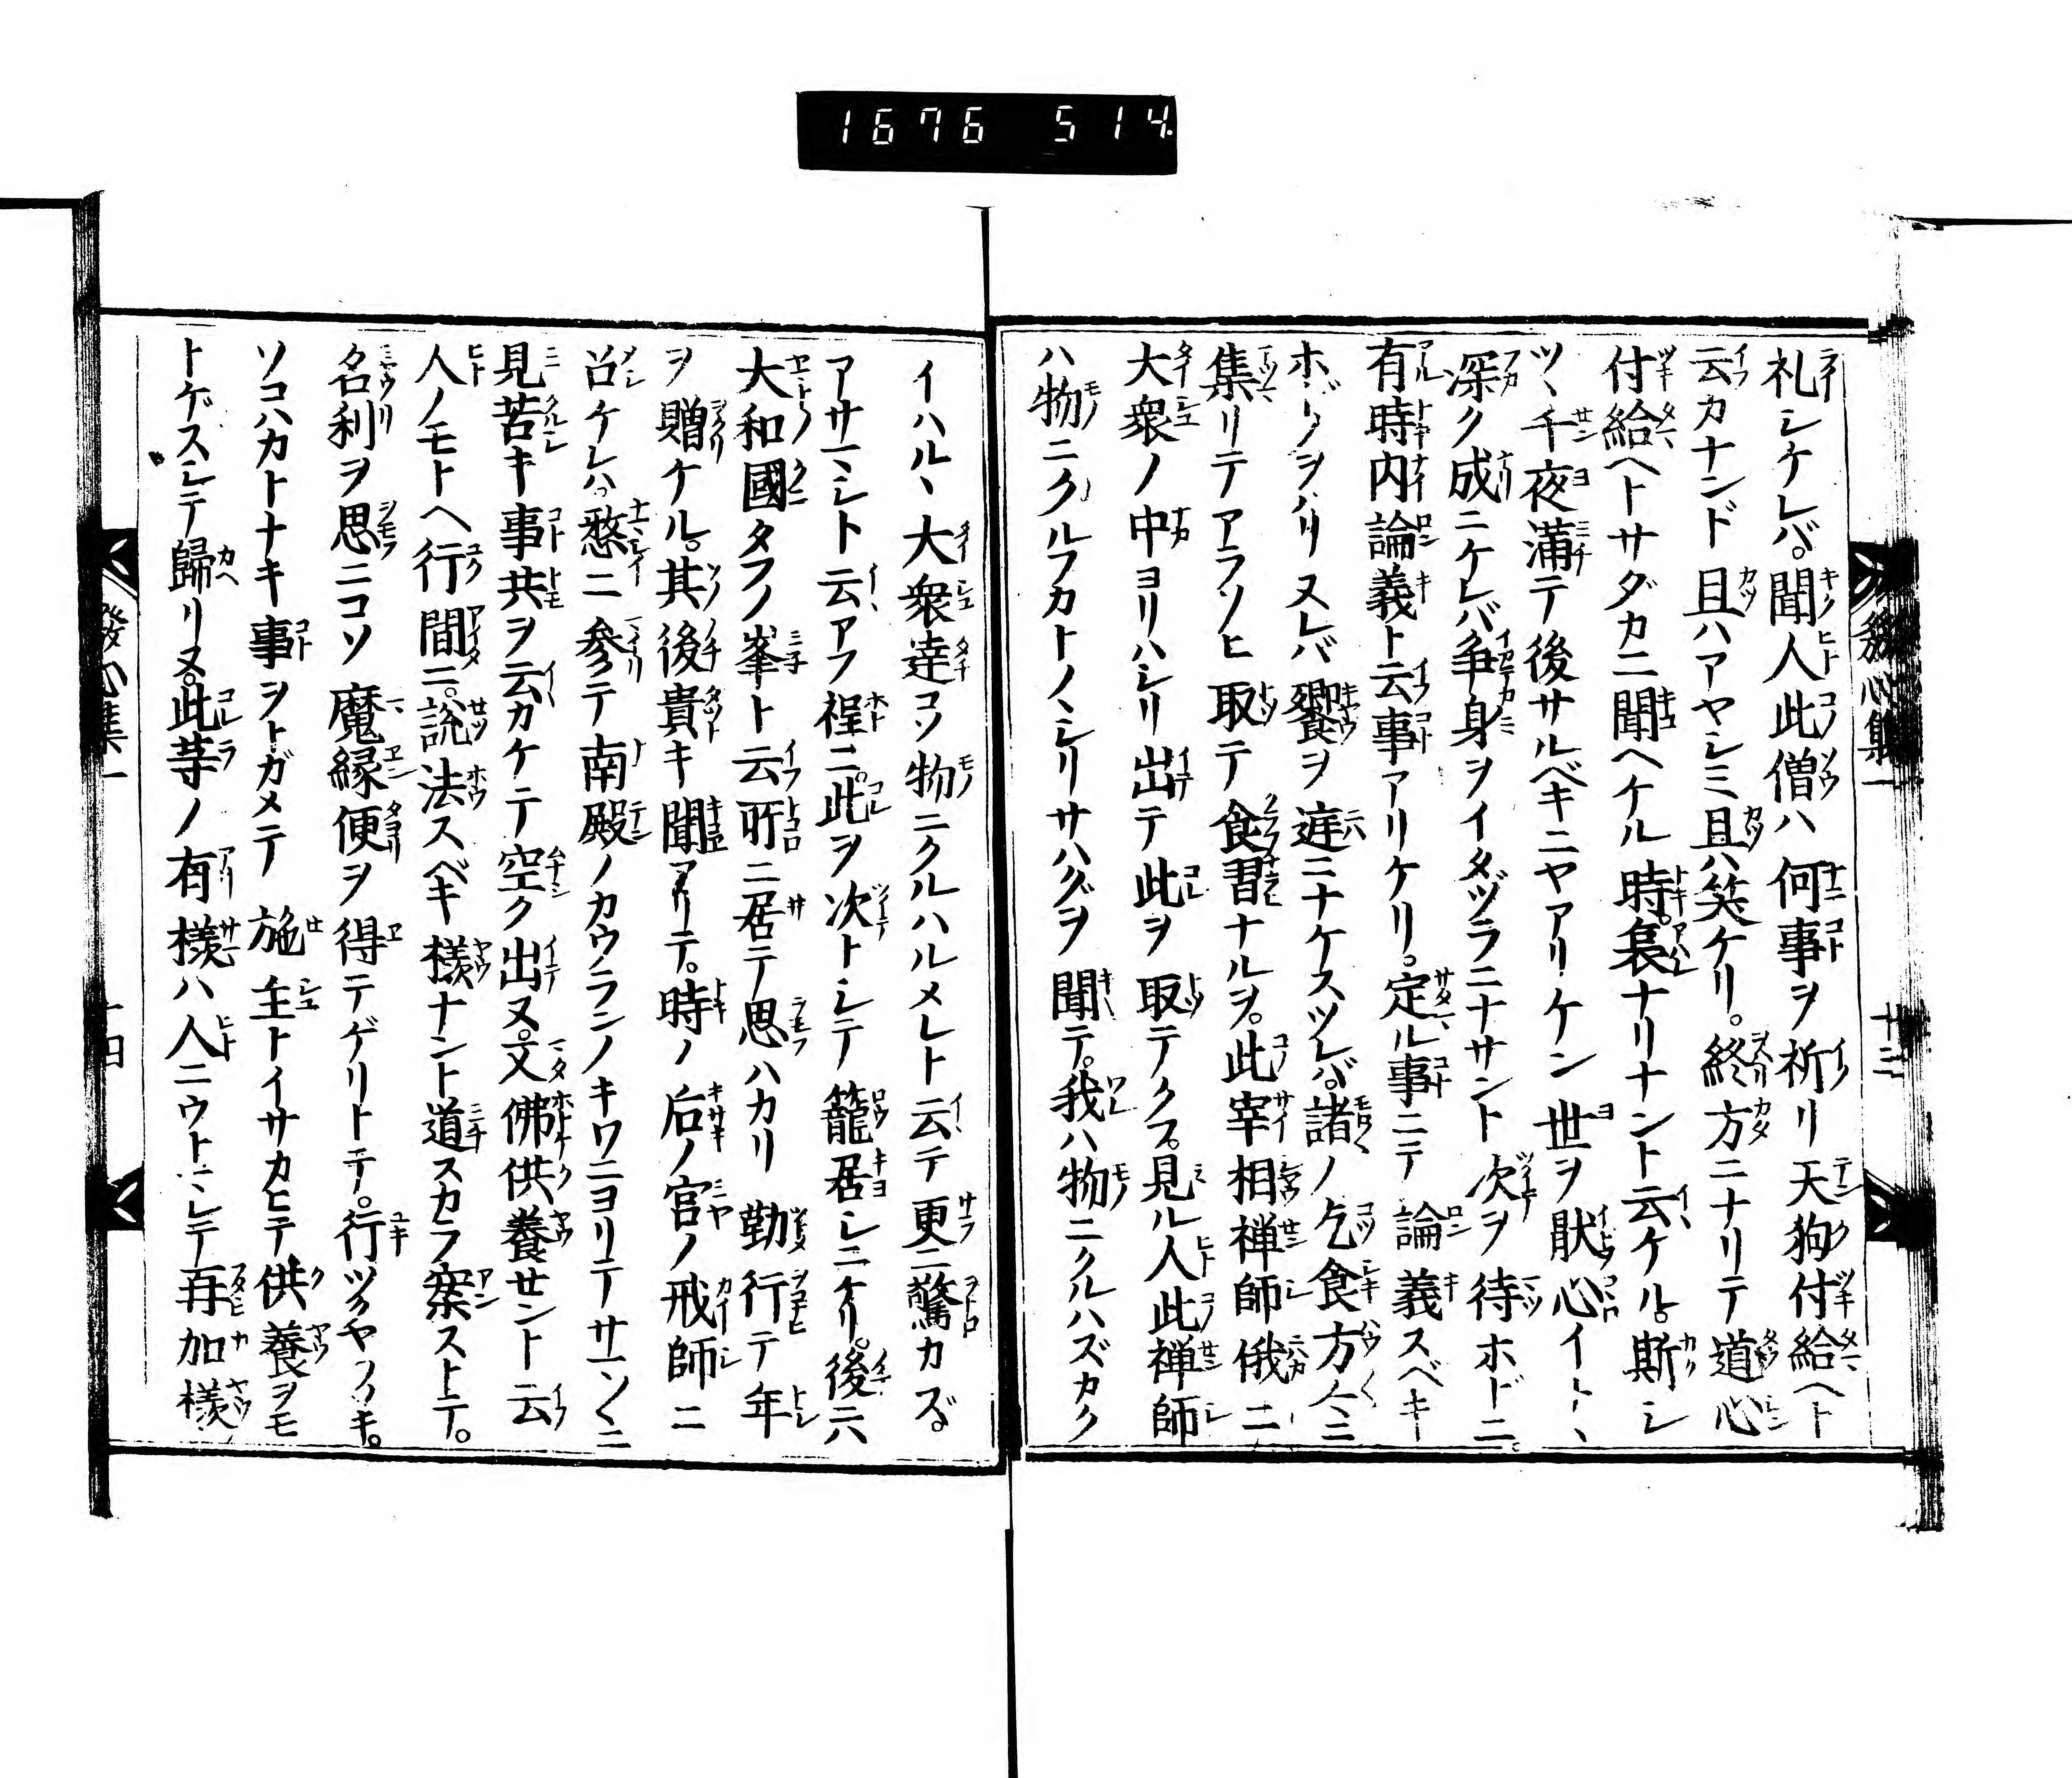 1676 514
礼シケレバ。聞人此僧ハ何事ヲ祈リ天狗付給ヘト
云カナンド且ハアヤシミ且ハ笑ケリ。終方ニナリテ道心
付給ヘトサダカニ聞ヘケル時。哀ナリナント云ケル。斯シ
ツヽ千夜満テ後サルベキニヤアリケン世ヲ猒心イトヽ
深ク成ニケレバ争身ヲイタヅラニナサント次ヲ待ホドニ。
有時内論義ト云事アリケリ。定ル事ニテ論義スベキ
ホドヲハリヌレバ饗ヲ庭ニナケスツレバ。諸ノ乞食方〱ニ
集リテアラソヒ取テ食習ナルヲ。此宰相禅師俄ニ
大衆ノ中ヨリハシリ出テ此ヲ取テクフ。見ル人此禅師
ハ物ニクルフカトノヽシリサハグヲ聞テ。我ハ物ニクルハズカク
イハルヽ大衆達コソ物ニクルハルメレト云テ更ニ驚カズ
アサマシト云アフ程ニ。此ヲ次トシテ籠居シニケリ。後六
大和國タフノ峯ト云所ニ居テ思ハカリ勤行テ年
ヲ贈ケル。其後貴キ聞アリテ。時ノ后ノ宮ノ戒師ニ
召ケレハ。憗ニ参テ南殿ノカウランノキワニヨリテサマ〱ニ
見苦キ事共ヲ云カケテ空ク出ヌ。又佛供養セント云
人ノモトヘ行間ニ。説法スベキ様ナント道スカラ案ストテ。
名利ヲ思ニコソ魔縁便ヲ得テゲリトテ。行ツクヤヲソキ。
ソコハカトナキ事ヲトガメテ施主トイサカヒテ供養ヲモ
トゲスシテ歸リヌ。此等ノ有様ハ人ニウトマレテ再加様
發心集一
十三
發心集一
十四